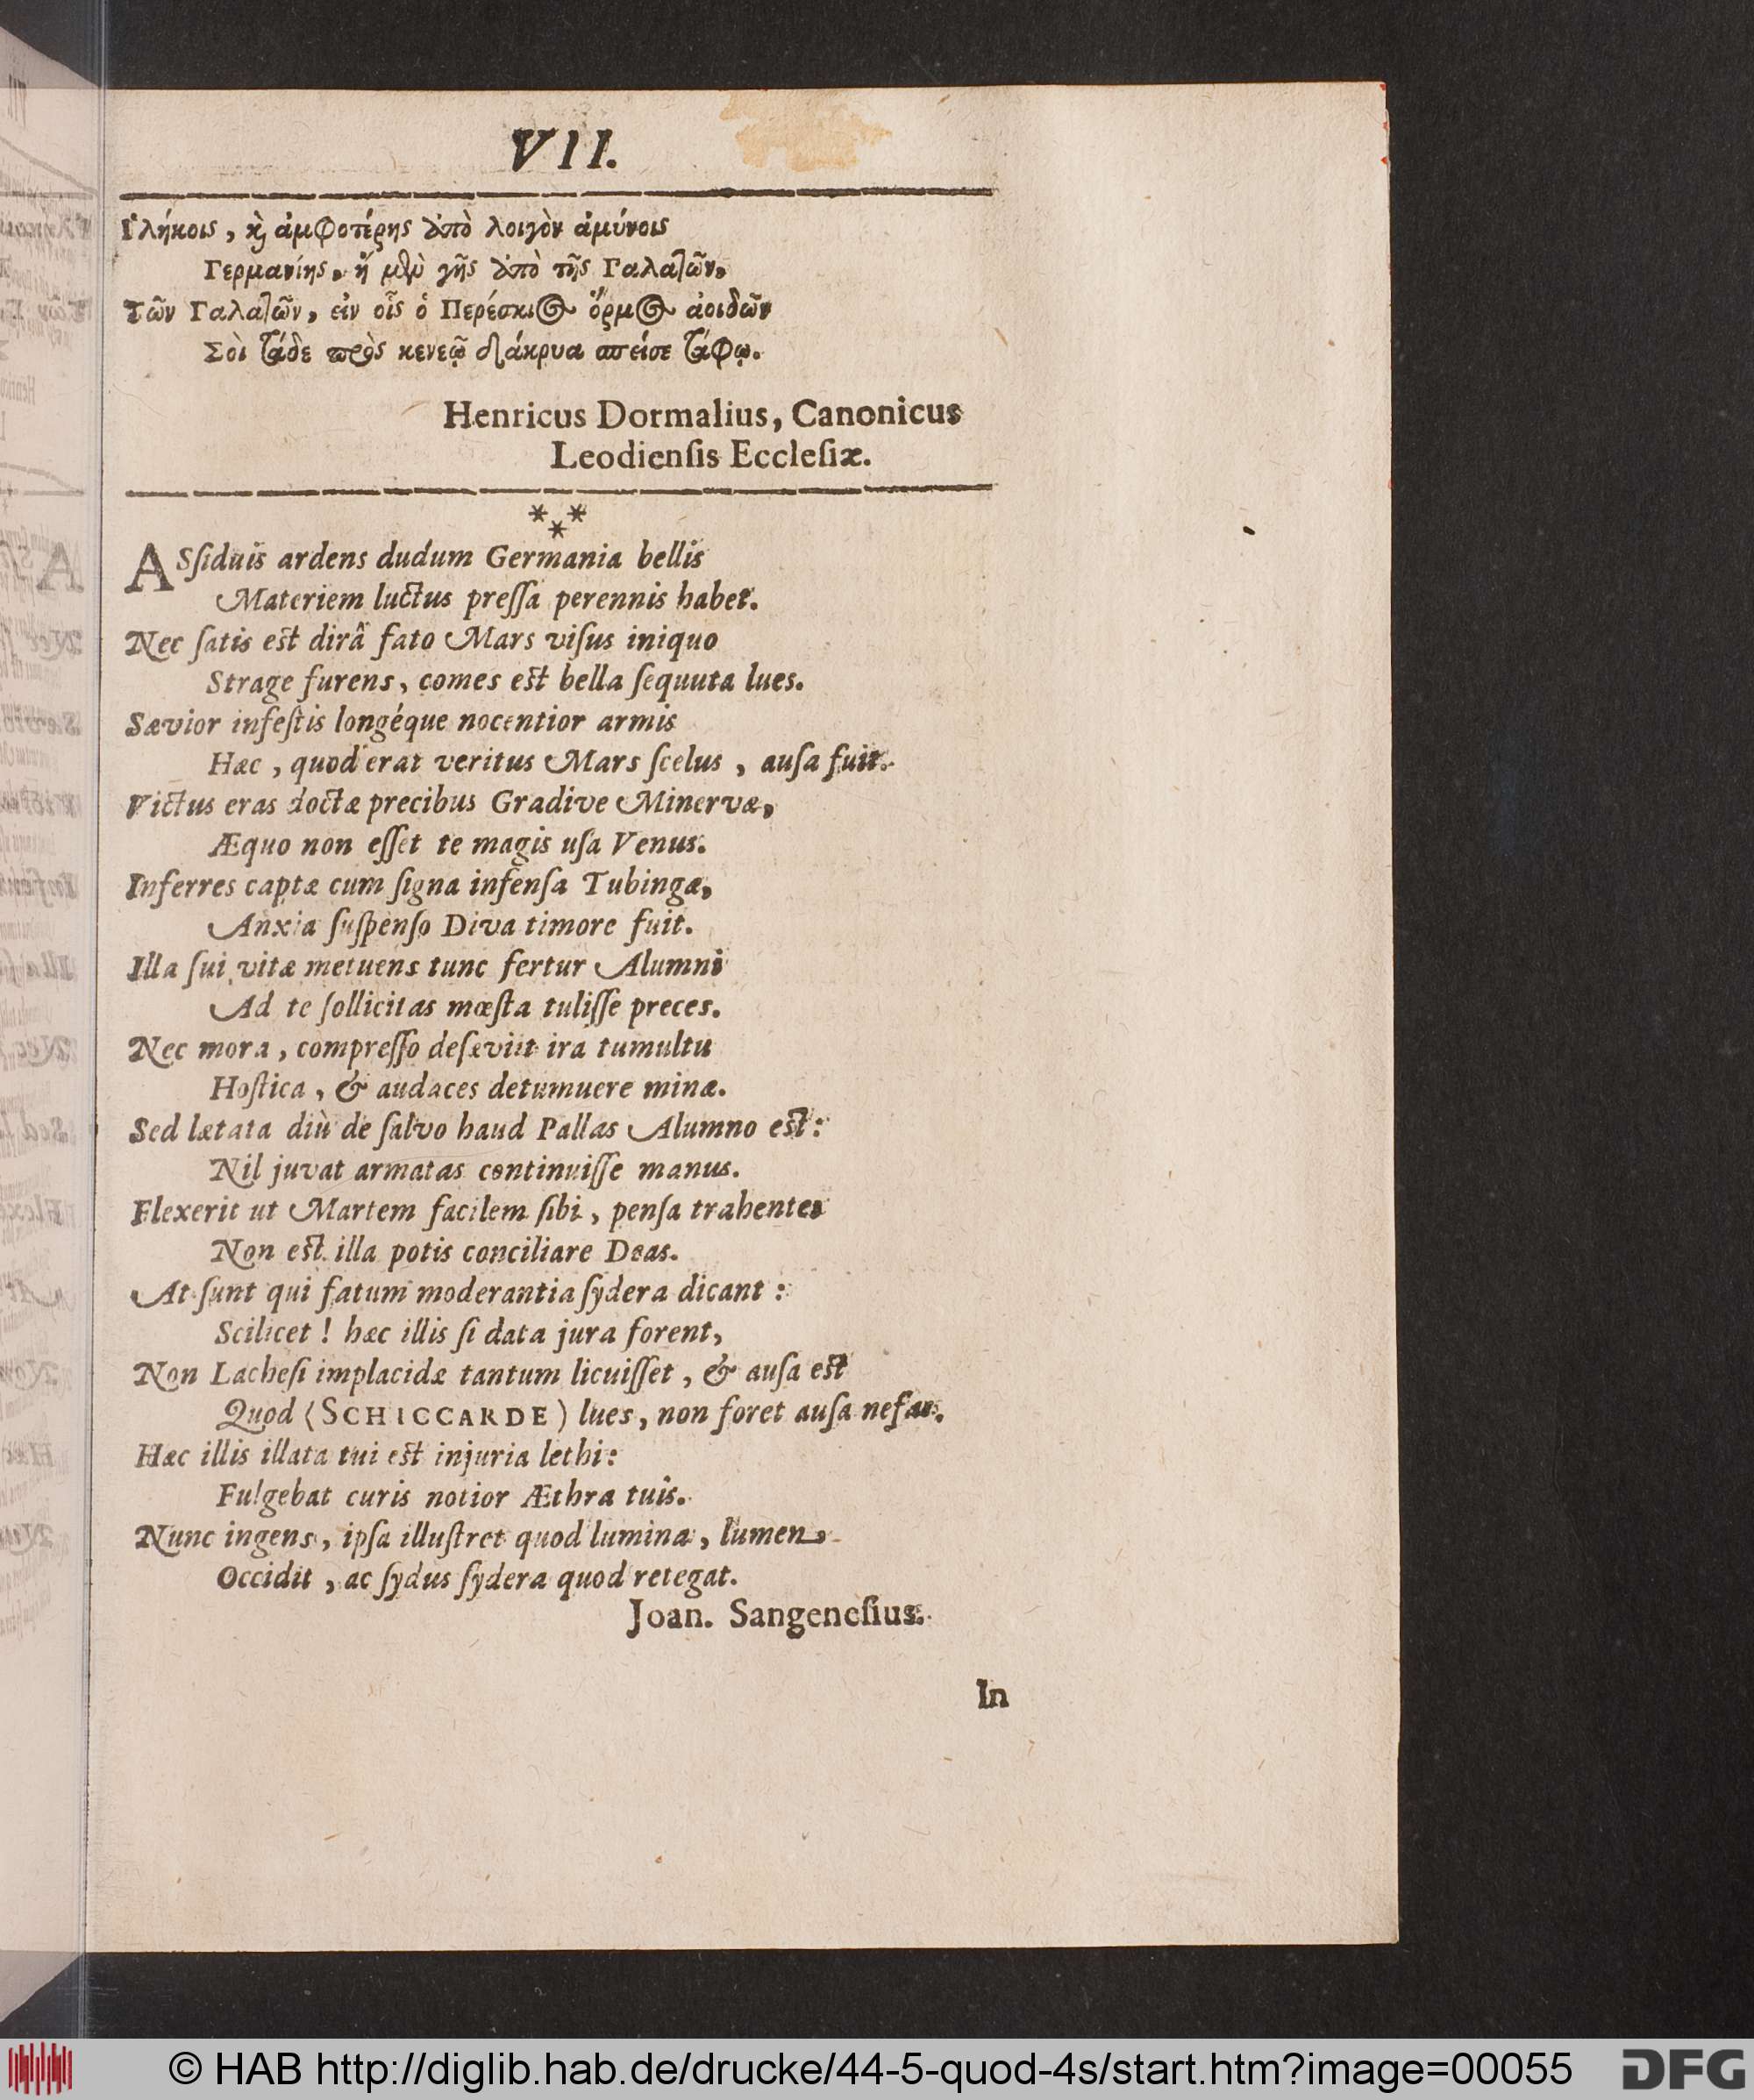 VII.
Ἱλήκοις, ϗ ἀμφοτέρης ἀπὸ λοιγὸν ἀμύνοις
Γερμανίης, ἤ μὲν γῆς ἀπὸ τῆς Γαλατῶν,
Τῶν Γαλατῶν, εἰν οἷς ὁ Περέσκιος ὅρμος ἀοιδῶν
Σοὶ τάδε πρὸς κενεῷ δάκρυα σπεῖσε τάφῳ.
Henricus Dormalius, Canonicus
Leodienſis Eccleſiæ.
***
ASſiduis ardens dudum Germania bellis
Materiem luctus preſſa perennis habet.
Nec ſatis est dirâ fato Mars viſus iniquo
Strage furens, comes est bella ſequuta lues.
Sævior infeſtis longéque nocentior armis
Hæc, quod erat veritus Mars ſcelus, auſa fuit.
Victus eras doctæ precibus Gradive Minervæ,
Æquo non eſſet te magis uſa Venus.
Inferres captæ cum ſigna infenſa Tubingæ,
Anxia ſuſpenſo Diva timore fuit.
Illa ſui vitæ metuens tunc fertur Alumni
Ad te ſollicitas mœſta tuliſſe preces.
Nec mora, compreſſo deſæviit ira tumultu
Hoſtica, & audaces detumuere minæ.
Sed lætata diù de ſalvo haud Pallas Alumno est:
Nil juvat armatas continuiſſe manus.
Flexerit ut Martem facilem ſibi, penſa trahentes
Non est illa potis conciliare Deas.
At ſunt qui fatum moderantia ſydera dicant:
Scilicet! hæc illis ſi data jura forent,
Non Lacheſi implacidæ tantum licuiſſet, & auſa est
Quod (SCHICCARDE) lues, non foret auſa nefas.
Hæc illis illata tui est injuria lethi:
Fulgebat curis notior Æthra tuis.
Nunc ingens, ipſa illuſtret quod lumina, lumen,
Occidit, ac ſydus ſydera quod retegat.
Joan. Sangeneſius.
In
© HAB http://diglib.hab.de/drucke/44-5-quod-4s/start.htm?image=00055
DFG